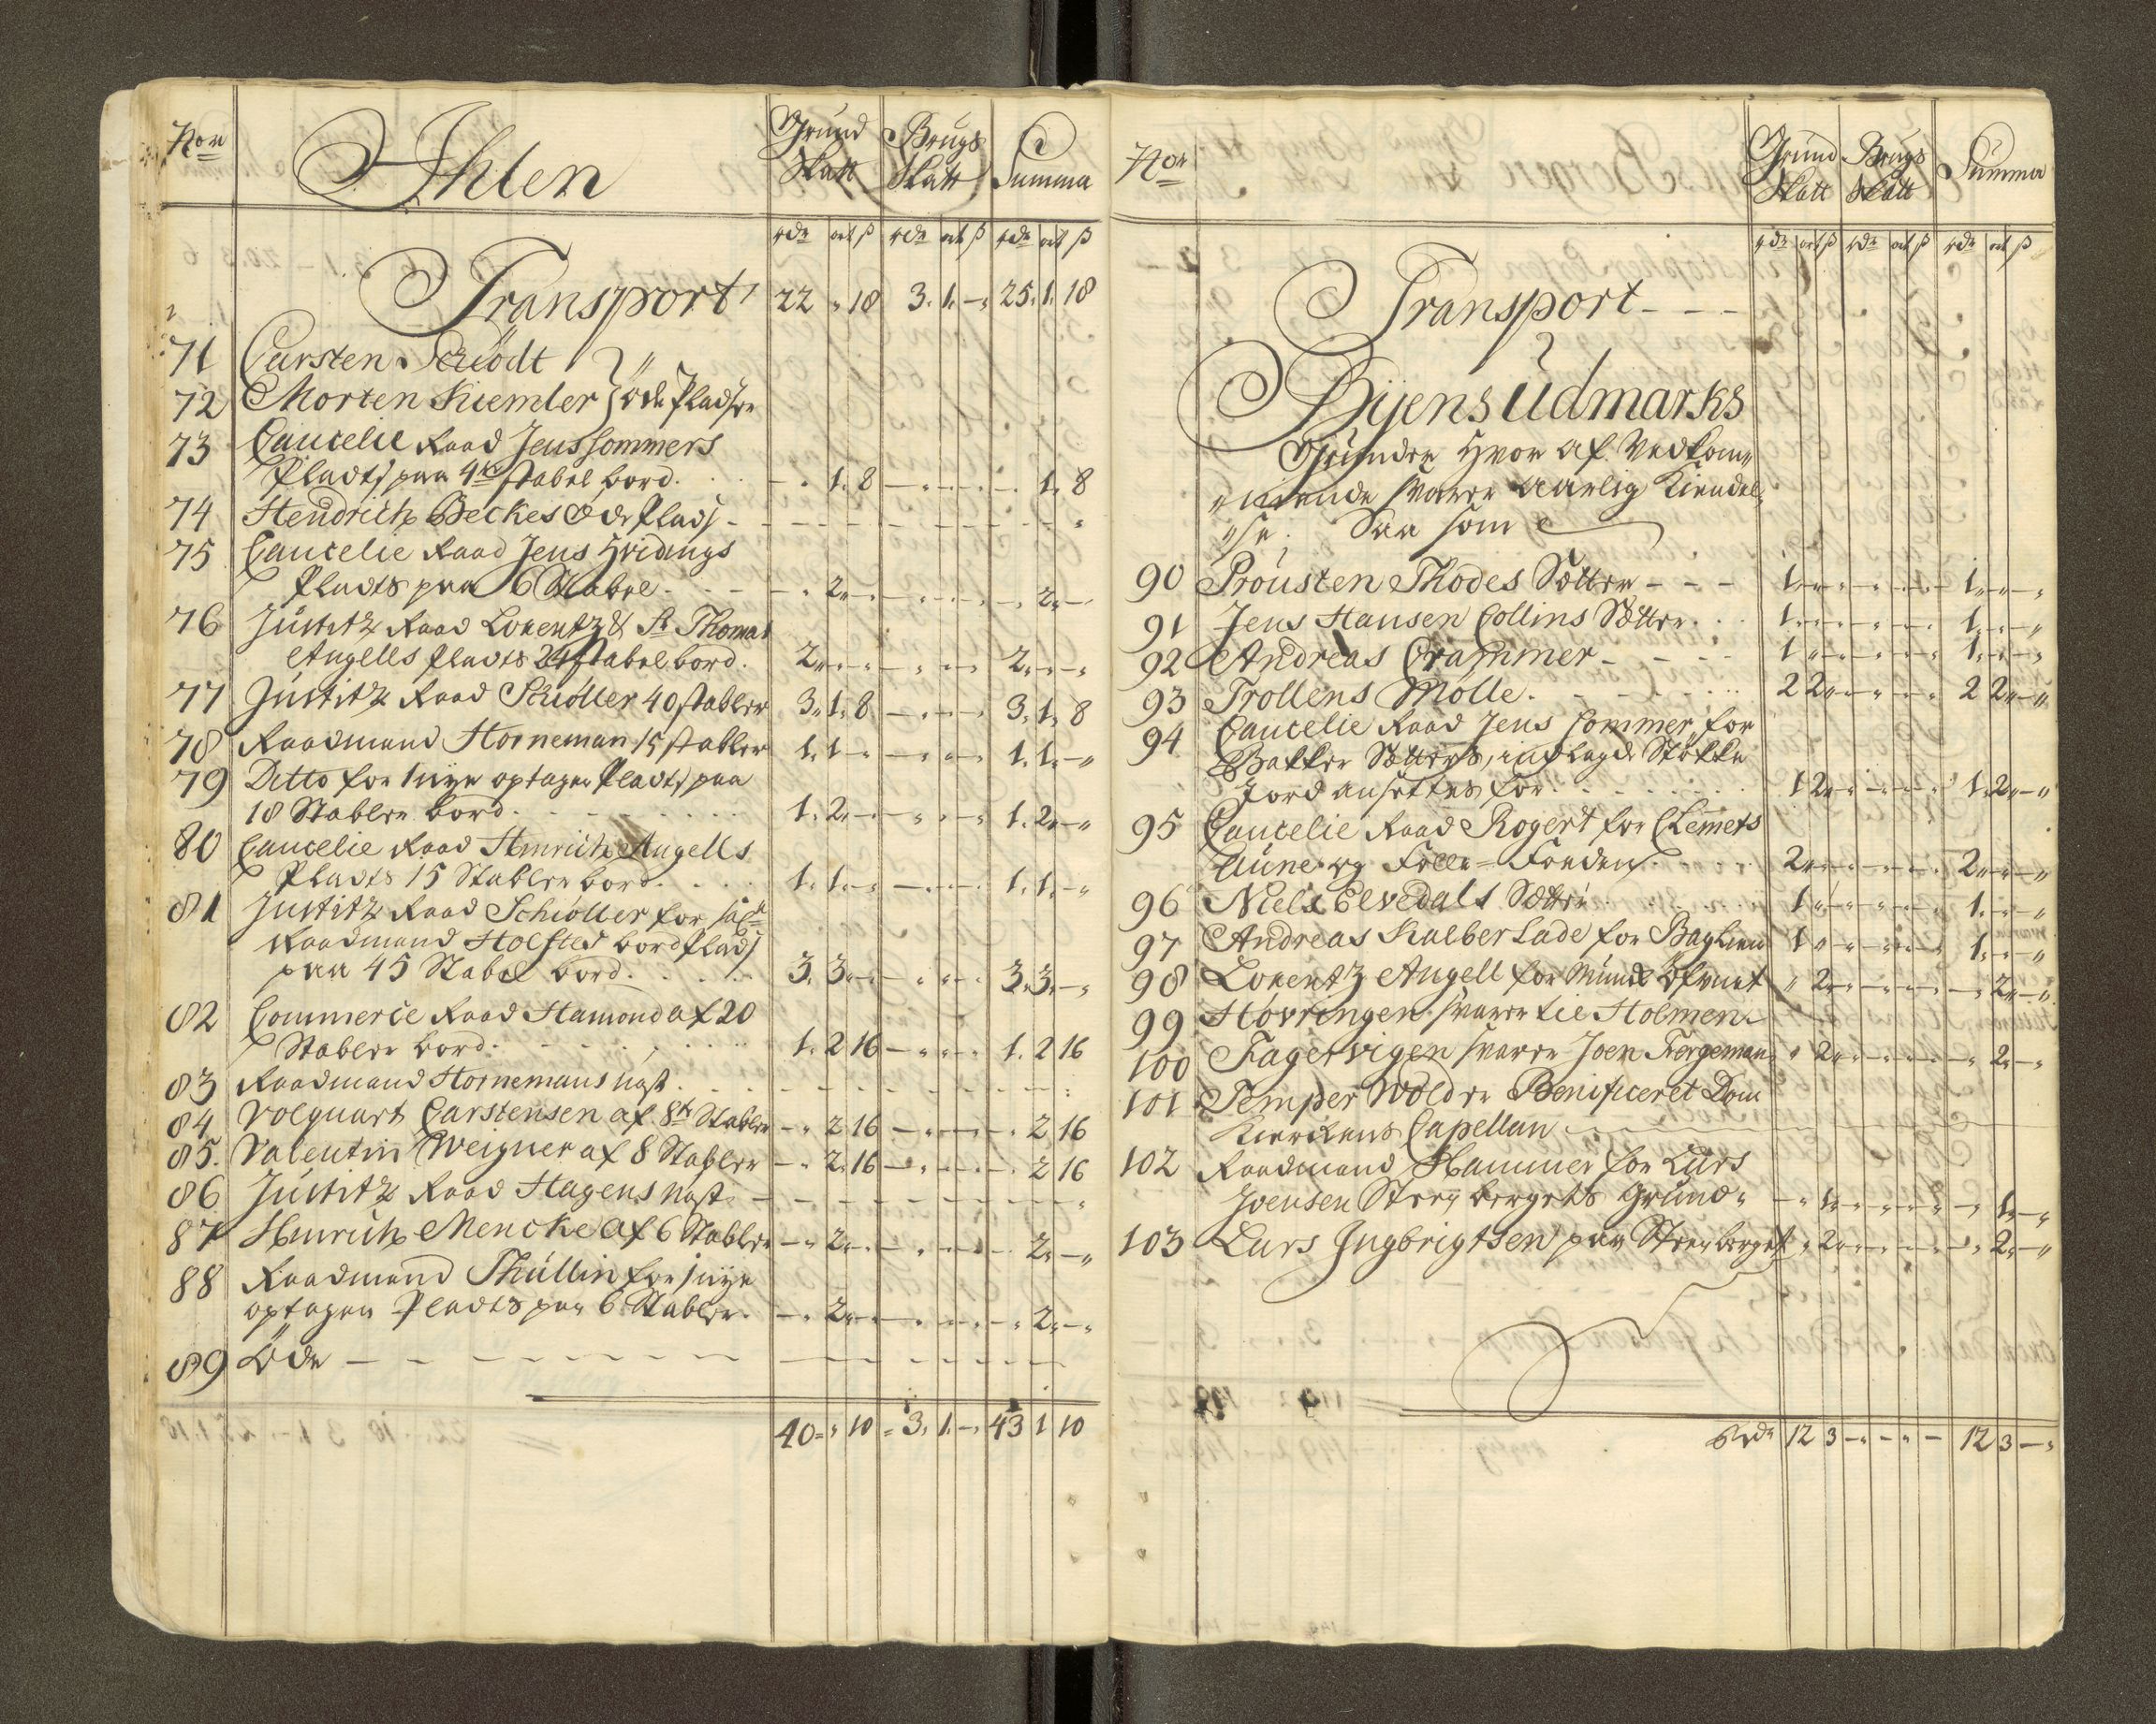 No=
Ihlen
Grund Skatt
Brugs Skatt
Summa
rdr ort ß rdr ort ß rdr ort ß
Transport 22 " 18 3. 1. - " 25. 1. 18
71 Carsten Schiödt
72 Morten Kiemler öde Pladser
73 Cancelie Raad Jens Sommers
Pladts paa 4re stabel bord. - " 1. 8 - 1. 8
74 Hendrich Beckes öde Plads -
75 Cancelie Raad Jens Hvidings
Pladts paa 6 Stabre - " 2 " - 2 " -
76 Justitz Raad Lorentz & Sr Thomas
Angells Pladts 24 stabel bord. 2 " - 2 " -
77 Justitz Raad Schiöller 40 stabler 3. 1. 8 - 3. 1. 8
78 Raadmand Horneman 15 stabler 1. 1 - " - 1. 1. - "
79 Ditto for 1 nye optagen Pladts paa
18 Stabler bord. 1. 2 " - 1. 2 " - "
80 Cancelie Raad Hinrich Angells
Pladts 15 Stabler bord. 1. 1. - " - 1. 1. - "
81 Justitz Raad Schiöller for
Raadmand Holsted bord Plads
paa 45 Stabel bord. 3. 3 " - 3. 3. - "
82 Commerce Raad Hamond af 20
Stabler bord. 1. 2 16 - 1. 2 16
83 Raadmand Hornemans nøst.
84 Volquart Carstensen af 8te Stabler - " 2 16 - 2 16
85. Valentin Weigner af 8 Stabler - " 2. 16 - 2 16
86 Justitz Raad Hagens nøst -
87 Hinrich Mencke af 6 Stabler - " 2 " - 2. - "
88 Raadmand Thullin for 1 nye
optagen Pladts paa 6 Stabler. - " 2 " - 2. - "
89 Öde -
40 = " 10 = 3. 1. - " 43 1 10
No=
Grund Skatt
Brugs Skatt
Summa
rdr ort ß rdr ort ß rdr ort ß
Transport - - -
Byens Udmarks
Grunder Hvor af Vedkom"
"mende svarer aarlig Kiendel"
"se; Saa som
90 Prousten Thodes Sætter - - - 1. - 1. - "
91 Jens Hansen Collins Sætter. 1. - 1. - "
92 Andreas Crammer - 1 " - 1. - "
93 Trollens Mølle. 2 2 " - 2 2 " - "
94 Cancelie Raad Jens Sommer for
Bakker Sætters, indlagde Støkke
Jord ansættes for 1 2 " - 1. 2 " - "
95 Cancelie Raad Rogert for Clemets
Aune og - 2 " - 2 " - "
96 Niels Elvedals Sætter 1 " - 1. - "
97 Andreas Kalber Lade for Baglien 1 " - 1. - "
98 Lorentz Angell for - " 2 " - 2 " - "
99 Høvringen svarer til Holmen
100 Fagervigen svarer Joen Færgeman " 2 " - 2. - "
101 Temper Wolden Benificeret Dom
Kierckens Capellan
102 Raadmand Hammer for Lars
Joensen Steenbergets Grund - " 1 " - 1. - "
103 Lars Ingbrigtsen paa Steenberget " 2 " - 2. - "
rdr 12 3 - " - 12 3 - "